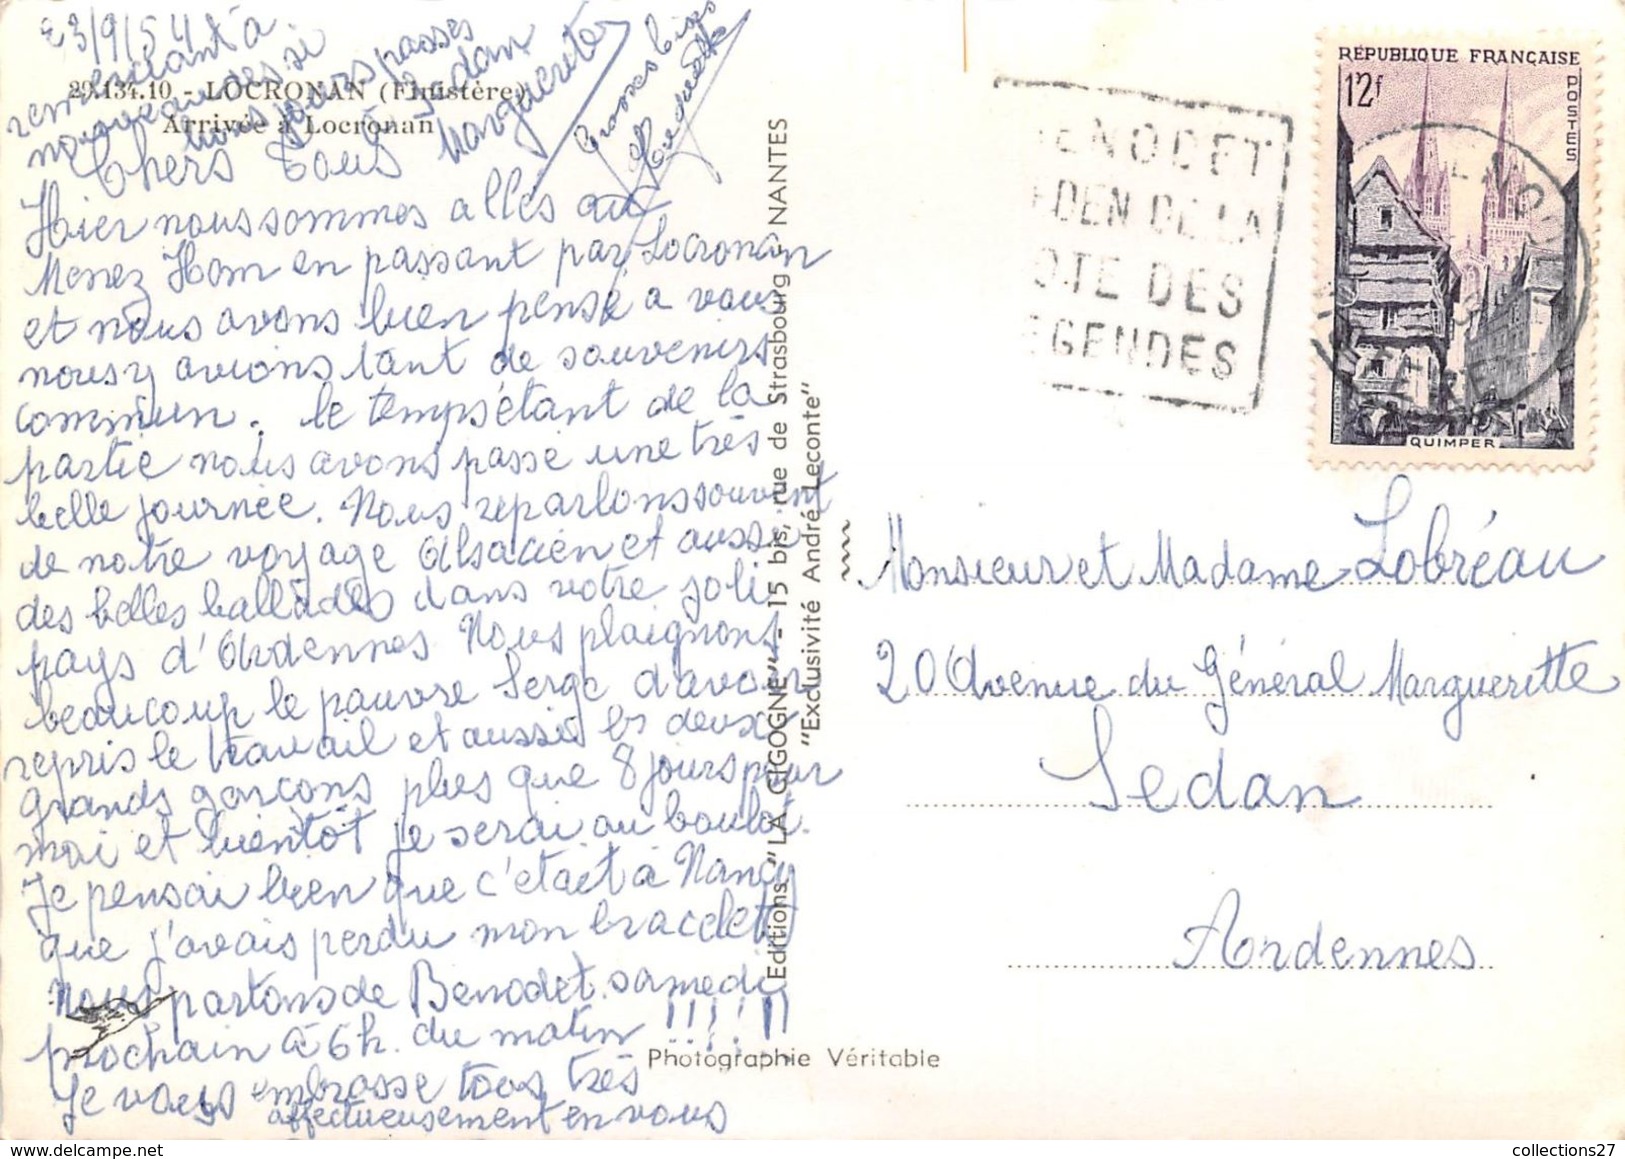 23/9/54
29.134.10 - LOCRONAN (Finistère)
Arrivée à Locronan
Chers Tous
Hier nous sommes allés au
Menez Hom en passant par Locronan
et nous avons bien pensé a vous
nous y avions tant de souvenirs
commun. le temps étant de la
partie nous avons passé une très
belle journée. Nous reparlons souvent
de notre voyage Alsacien et aussi
des belles ballades dans votre joli
pays d'Ardennes. Nous plaignons
beaucoup le pauvre Serge d'avoir
repris le travail et aussi les deux
grands garçons plus que 8 jours pour
moi et bientôt je serai au boulot.
Je pensai bien que c'était à Nancy
que j'avais perdu mon bracelet
Nous partons de Benodet samedi
prochain à 6h. du matin !!!!!!
Je vous embrasse tous très
affectueusement en vous
remerciant à
nouveau des si
bons jours passés
à Sedan
Marguerite
Grosses bises
Huguette
Editions "LA CIGOGNE" - 15 bis, rue de Strasbourg - NANTES
"Exclusivité André Leconte"
Photographie Véritable
ENODET
EDEN DE LA
OTE DES
EGENDES
RÉPUBLIQUE FRANÇAISE
12f
POSTES
QUIMPER
FINISTERE
Monsieur et Madame Lobréau
20 Avenue du Général Margueritte
Sedan
Ardennes
collections27